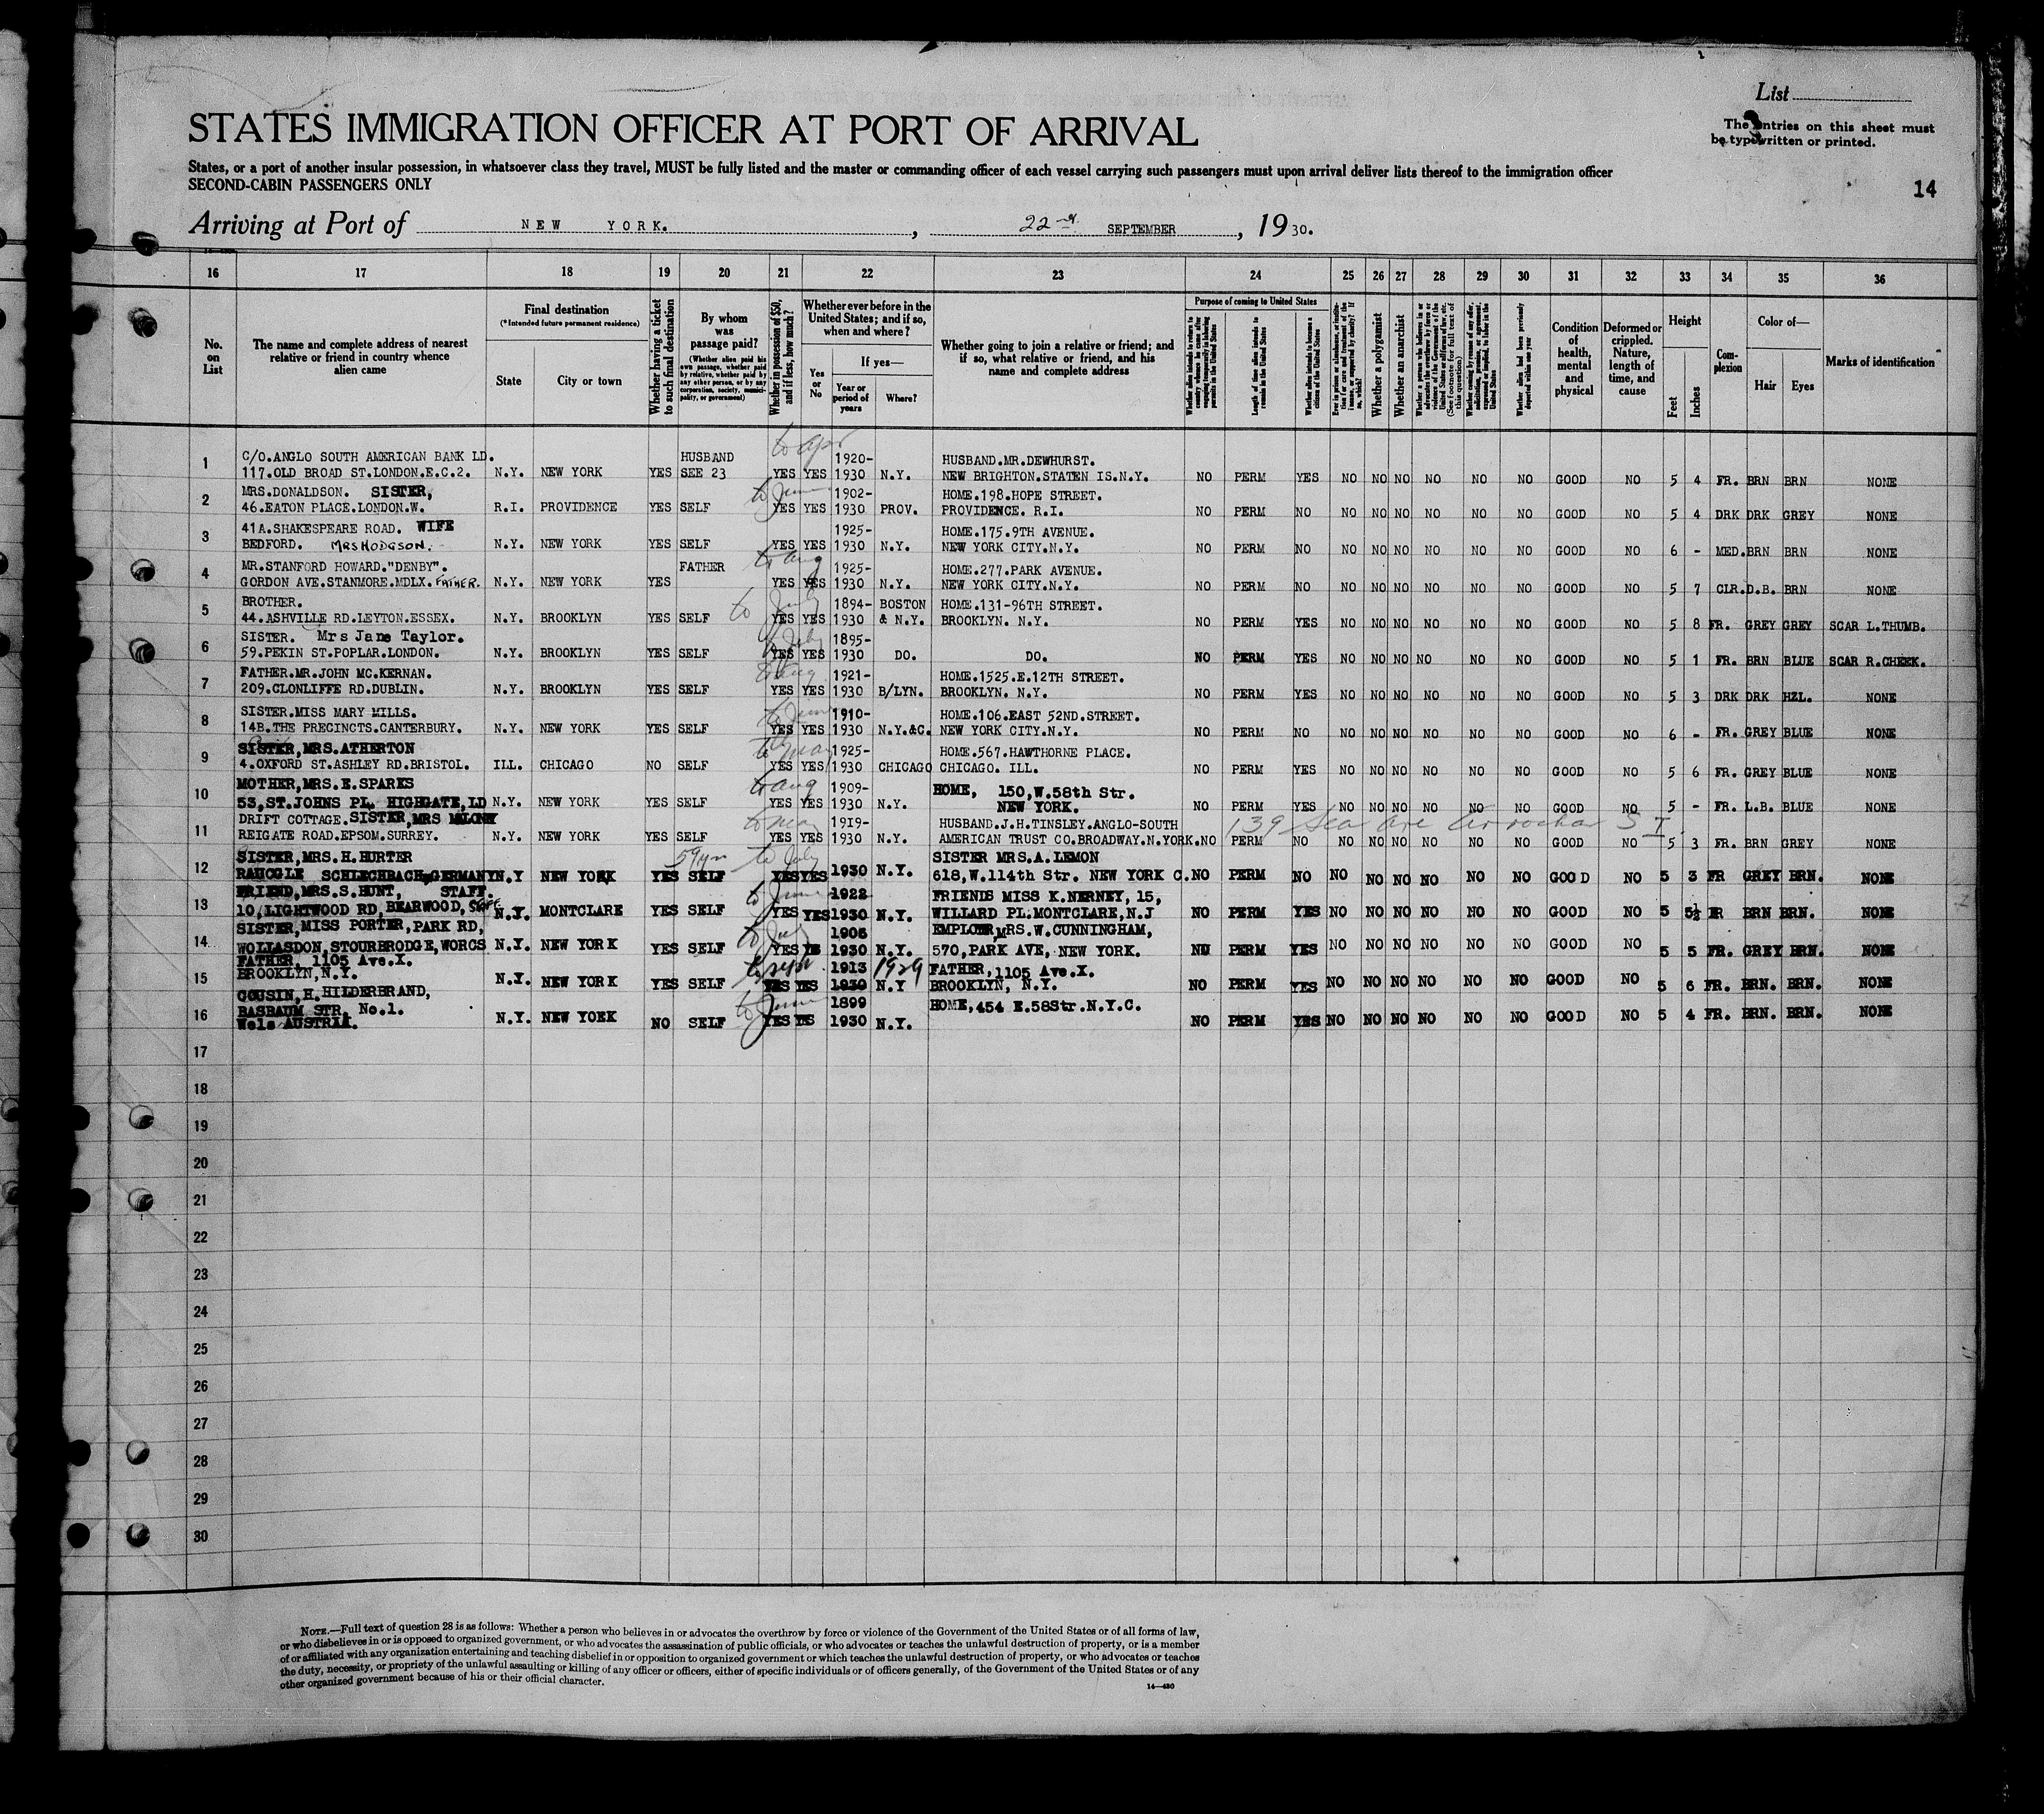 List
STATES IMMIGRATION OFFICER AT PORT OF ARRIVAL
The entries on this sheet must
be typewritten or printed.
States, or a port of another insular possession, in whatsoever class they travel, MUST be fully listed and the master or commanding officer of each vessel carrying such passengers must upon arrival deliver lists thereof to the immigration officer
SECOND-CABIN PASSENGERS ONLY
14
Arriving at Port of NEW YORK. , 22nd SEPTEMBER , 1930.
16 17 18 19 20 21 22 23 24 25 26 27 28 29 30 31 32 33 34 35 36
No. on List
The name and complete address of nearest relative or friend in country whence alien came
Final destination
(*Intended future permanent residence)
State
City or town
Whether having a ticket to such final destination
By whom was passage paid?
(Whether alien paid his own passage, whether paid by relative, whether paid by any other person, or by any corporation, society, municipality, or government)
Whether in possession of $50, and if less, how much?
Whether ever before in the United States; and if so, when and where?
Yes or No
If yes—
Year or period of years
Where?
Whether going to join a relative or friend; and if so, what relative or friend, and his name and complete address
Purpose of coming to United States
Length of time alien intends to remain in the United States
Whether alien intends to become a citizen of the United States
Whether a polygamist
Whether an anarchist
Condition of health, mental and physical
Deformed or crippled. Nature, length of time, and cause
Height
Feet
Inches
Complexion
Color of—
Hair
Eyes
Marks of identification
C/O.ANGLO SOUTH AMERICAN BANK LD. HUSBAND to apr 1920- HUSBAND.MR.DEWHURST.
1 117.OLD BROAD ST.LONDON.E.C.2. N.Y. NEW YORK YES SEE 23 YES YES 1930 N.Y. NEW BRIGHTON.STATEN IS.N.Y. NO PERM YES NO NO NO NO NO NO GOOD NO 5 4 FR. BRN BRN NONE
MRS.DONALDSON. SISTER, to June 1902- HOME.198.HOPE STREET.
2 46.EATON PLACE.LONDON.W. R.I. PROVIDENCE YES SELF YES YES 1930 PROV. PROVIDENCE. R.I. NO PERM NO NO NO NO NO NO NO GOOD NO 5 4 DRK DRK GREY NONE
41A.SHAKESPEARE ROAD. WIFE 1925- HOME.175.9TH AVENUE.
3 BEDFORD. MRS HODGSON. N.Y. NEW YORK YES SELF YES YES 1930 N.Y. NEW YORK CITY.N.Y. NO PERM NO NO NO NO NO NO NO GOOD NO 6 - MED. BRN BRN NONE
MR.STANFORD HOWARD."DENBY". FATHER to aug 1925- HOME.277.PARK AVENUE.
4 GORDON AVE.STANMORE.MDLX. FATHER. N.Y. NEW YORK YES YES YES 1930 N.Y. NEW YORK CITY.N.Y. NO PERM NO NO NO NO NO NO NO GOOD NO 5 7 CLR. D.B. BRN NONE
BROTHER. to July 1894- BOSTON HOME.131-96TH STREET.
5 44.ASHVILLE RD.LEYTON.ESSEX. N.Y. BROOKLYN YES SELF YES YES 1930 & N.Y. BROOKLYN. N.Y. NO PERM YES NO NO NO NO NO NO GOOD NO 5 8 FR. GREY GREY SCAR L.THUMB.
SISTER. Mrs Jane Taylor. to July 1895-
6 59.PEKIN ST.POPLAR.LONDON. N.Y. BROOKLYN YES SELF YES YES 1930 DO. DO. NO PERM YES NO NO NO NO NO NO GOOD NO 5 1 FR. BRN BLUE SCAR R.CHEEK.
FATHER.MR.JOHN MC.KERNAN. to aug 1921- HOME.1525.E.12TH STREET.
7 209.CLONLIFFE RD.DUBLIN. N.Y. BROOKLYN YES SELF YES YES 1930 B/LYN. BROOKLYN. N.Y. NO PERM YES NO NO NO NO NO NO GOOD NO 5 3 DRK DRK HZL. NONE
SISTER.MISS MARY MILLS. to June 1910- HOME.106.EAST 52ND.STREET.
8 14B.THE PRECINCTS.CANTERBURY. N.Y. NEW YORK YES SELF YES YES 1930 N.Y.&C. NEW YORK CITY.N.Y. NO PERM NO NO NO NO NO NO NO GOOD NO 6 - FR. GREY BLUE NONE
SISTER,MRS.ATHERTON to may 1925- HOME.567.HAWTHORNE PLACE.
9 4.OXFORD ST.ASHLEY RD.BRISTOL. ILL. CHICAGO NO SELF YES YES 1930 CHICAGO CHICAGO. ILL. NO PERM YES NO NO NO NO NO NO GOOD NO 5 6 FR. GREY BLUE NONE
MOTHER,MRS.E.SPARKS to aug 1909- HOME, 150,W.58th Str.
10 53,ST.JOHNS PL. HIGHGATE,LD N.Y. NEW YORK YES SELF YES YES 1930 N.Y. NEW YORK. NO PERM YES NO NO NO NO NO NO GOOD NO 5 - FR. L.B. BLUE NONE
DRIFT COTTAGE.SISTER,MRS MALONY to may 1919- HUSBAND.J.H.TINSLEY.ANGLO-SOUTH 139 Sea ave Arrochar S I
11 REIGATE ROAD.EPSOM.SURREY. N.Y. NEW YORK YES SELF YES YES 1930 N.Y. AMERICAN TRUST CO.BROADWAY.N.YORK. NO PERM NO NO NO NO NO NO NO GOOD NO 5 3 FR. BRN GREY NONE
SISTER,MRS.H.HURTER 59 yrs to July SISTER MRS.A.LEMON
12 SCHLECHBACH,GERMANY N.Y NEW YORK YES SELF YES YES 1930 N.Y. 618,W.114th Str. NEW YORK C. NO PERM NO NO NO NO NO NO NO GOOD NO 5 3 FR GREY BRN. NONE
FRIEND,MRS.S.HUNT, STAFF. to June 1922 FRIENDS MISS K.NERNEY, 15,
13 10,LIGHTWOOD RD, BEARWOOD, N.J. MONTCLARE YES SELF YES YES 1930 N.Y. WILLARD PL.MONTCLARE,N.J NO PERM YES NO NO NO NO NO NO GOOD NO 5 5½ FR BRN BRN. NONE
SISTER,MISS PORTER,PARK RD, to July 1906 EMPLOYER,MRS.W.CUNNINGHAM,
14 WOLLASDON,STOURBRODGE,WORCS N.Y. NEW YORK YES SELF YES YES 1930 N.Y. 570,PARK AVE, NEW YORK. NO PERM YES NO NO NO NO NO NO GOOD NO 5 5 FR. GREY BRN. NONE
FATHER, 1105 Ave.X. to sept 1913 1929 FATHER,1105 Ave.X.
15 BROOKLYN,N.Y. N.Y. NEW YORK YES SELF YES YES 1930 N.Y BROOKLYN, N.Y. NO PERM YES NO NO NO NO NO NO GOOD NO 5 6 FR. BRN. BRN. NONE
COUSIN,H.HILDERBRAND, to June 1899 HOME,454 E.58Str.N.Y.C.
16 BASBAUM STR, No.1. N.Y. NEW YORK NO SELF YES YES 1930 N.Y. NO PERM YES NO NO NO NO NO NO GOOD NO 5 4 FR. BRN. BRN. NONE
Wels AUSTRIA.
17
18
19
20
21
22
23
24
25
26
27
28
29
30
NOTE.—Full text of question 28 is as follows: Whether a person who believes in or advocates the overthrow by force or violence of the Government of the United States or of all forms of law,
or who disbelieves in or is opposed to organized government, or who advocates the assassination of public officials, or who advocates or teaches the unlawful destruction of property, or is a member
of or affiliated with any organization entertaining and teaching disbelief in or opposition to organized government or which teaches the unlawful destruction of property, or who advocates or teaches
the duty, necessity, or propriety of the unlawful assaulting or killing of any officer or officers, either of specific individuals or of officers generally, of the Government of the United States or of any
other organized government because of his or their official character.
14—430